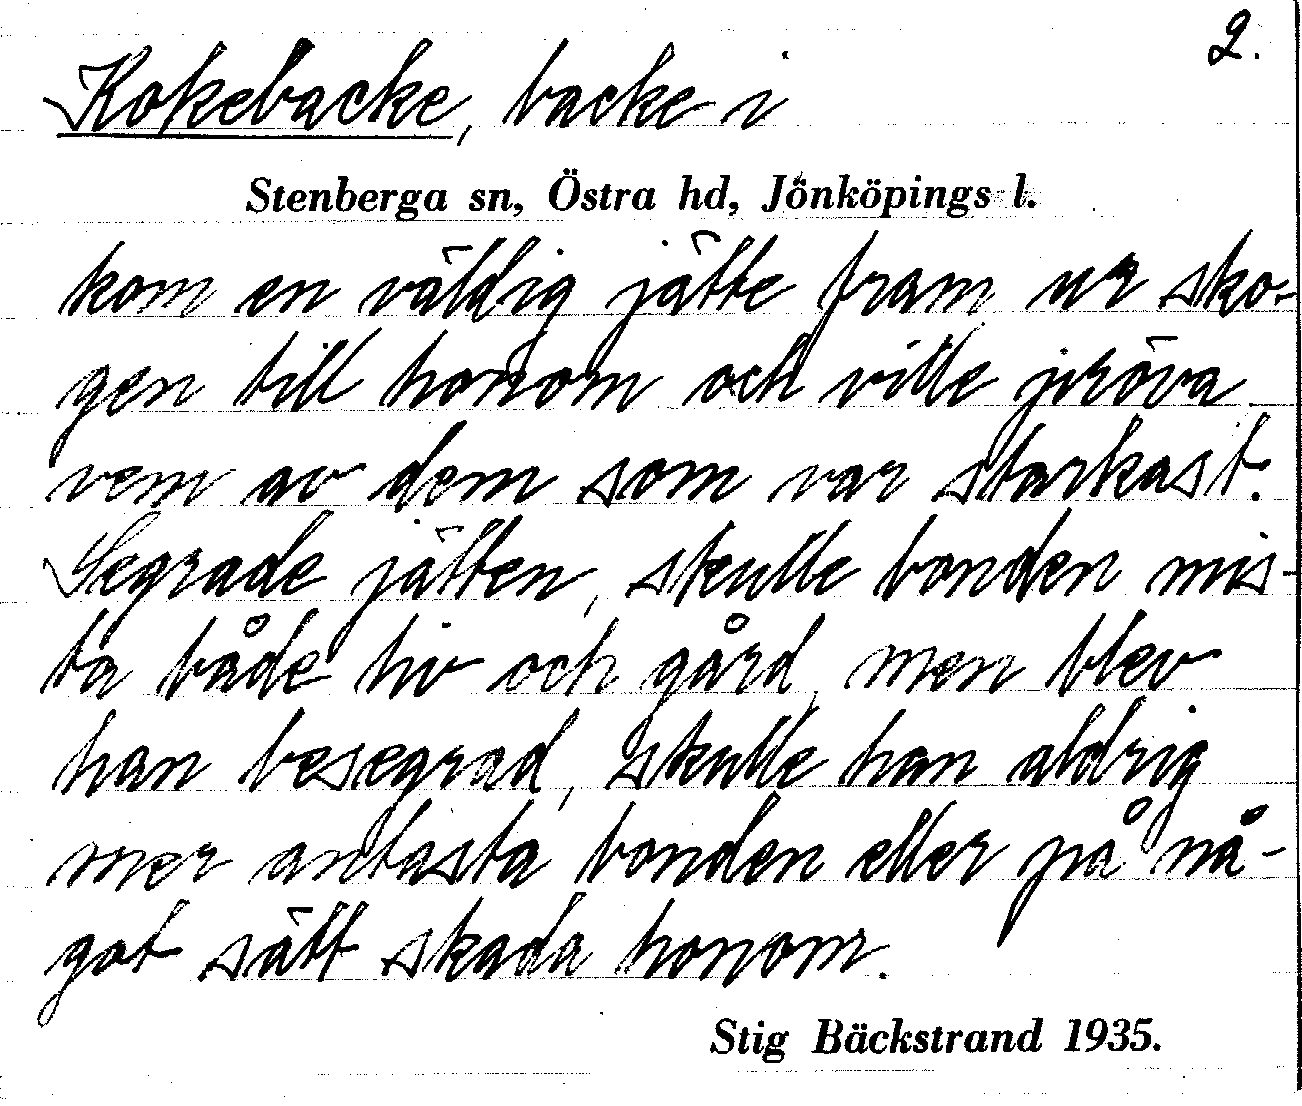 2.
Kokebacke, backe i
Stenberga sn, Östra hd, Jönköpings l.
kom en väldig jätte fram ur sko-
gen till honom och ville pröva
vem av dem som var starkast.
Segrade jätten, skulle bonden mis-
ta både liv och gård, men blev
han besegrad, skulle han aldrig
mer antasta bonden eller på nå-
got sätt skada honom.
Stig Bäckstrand 1935.